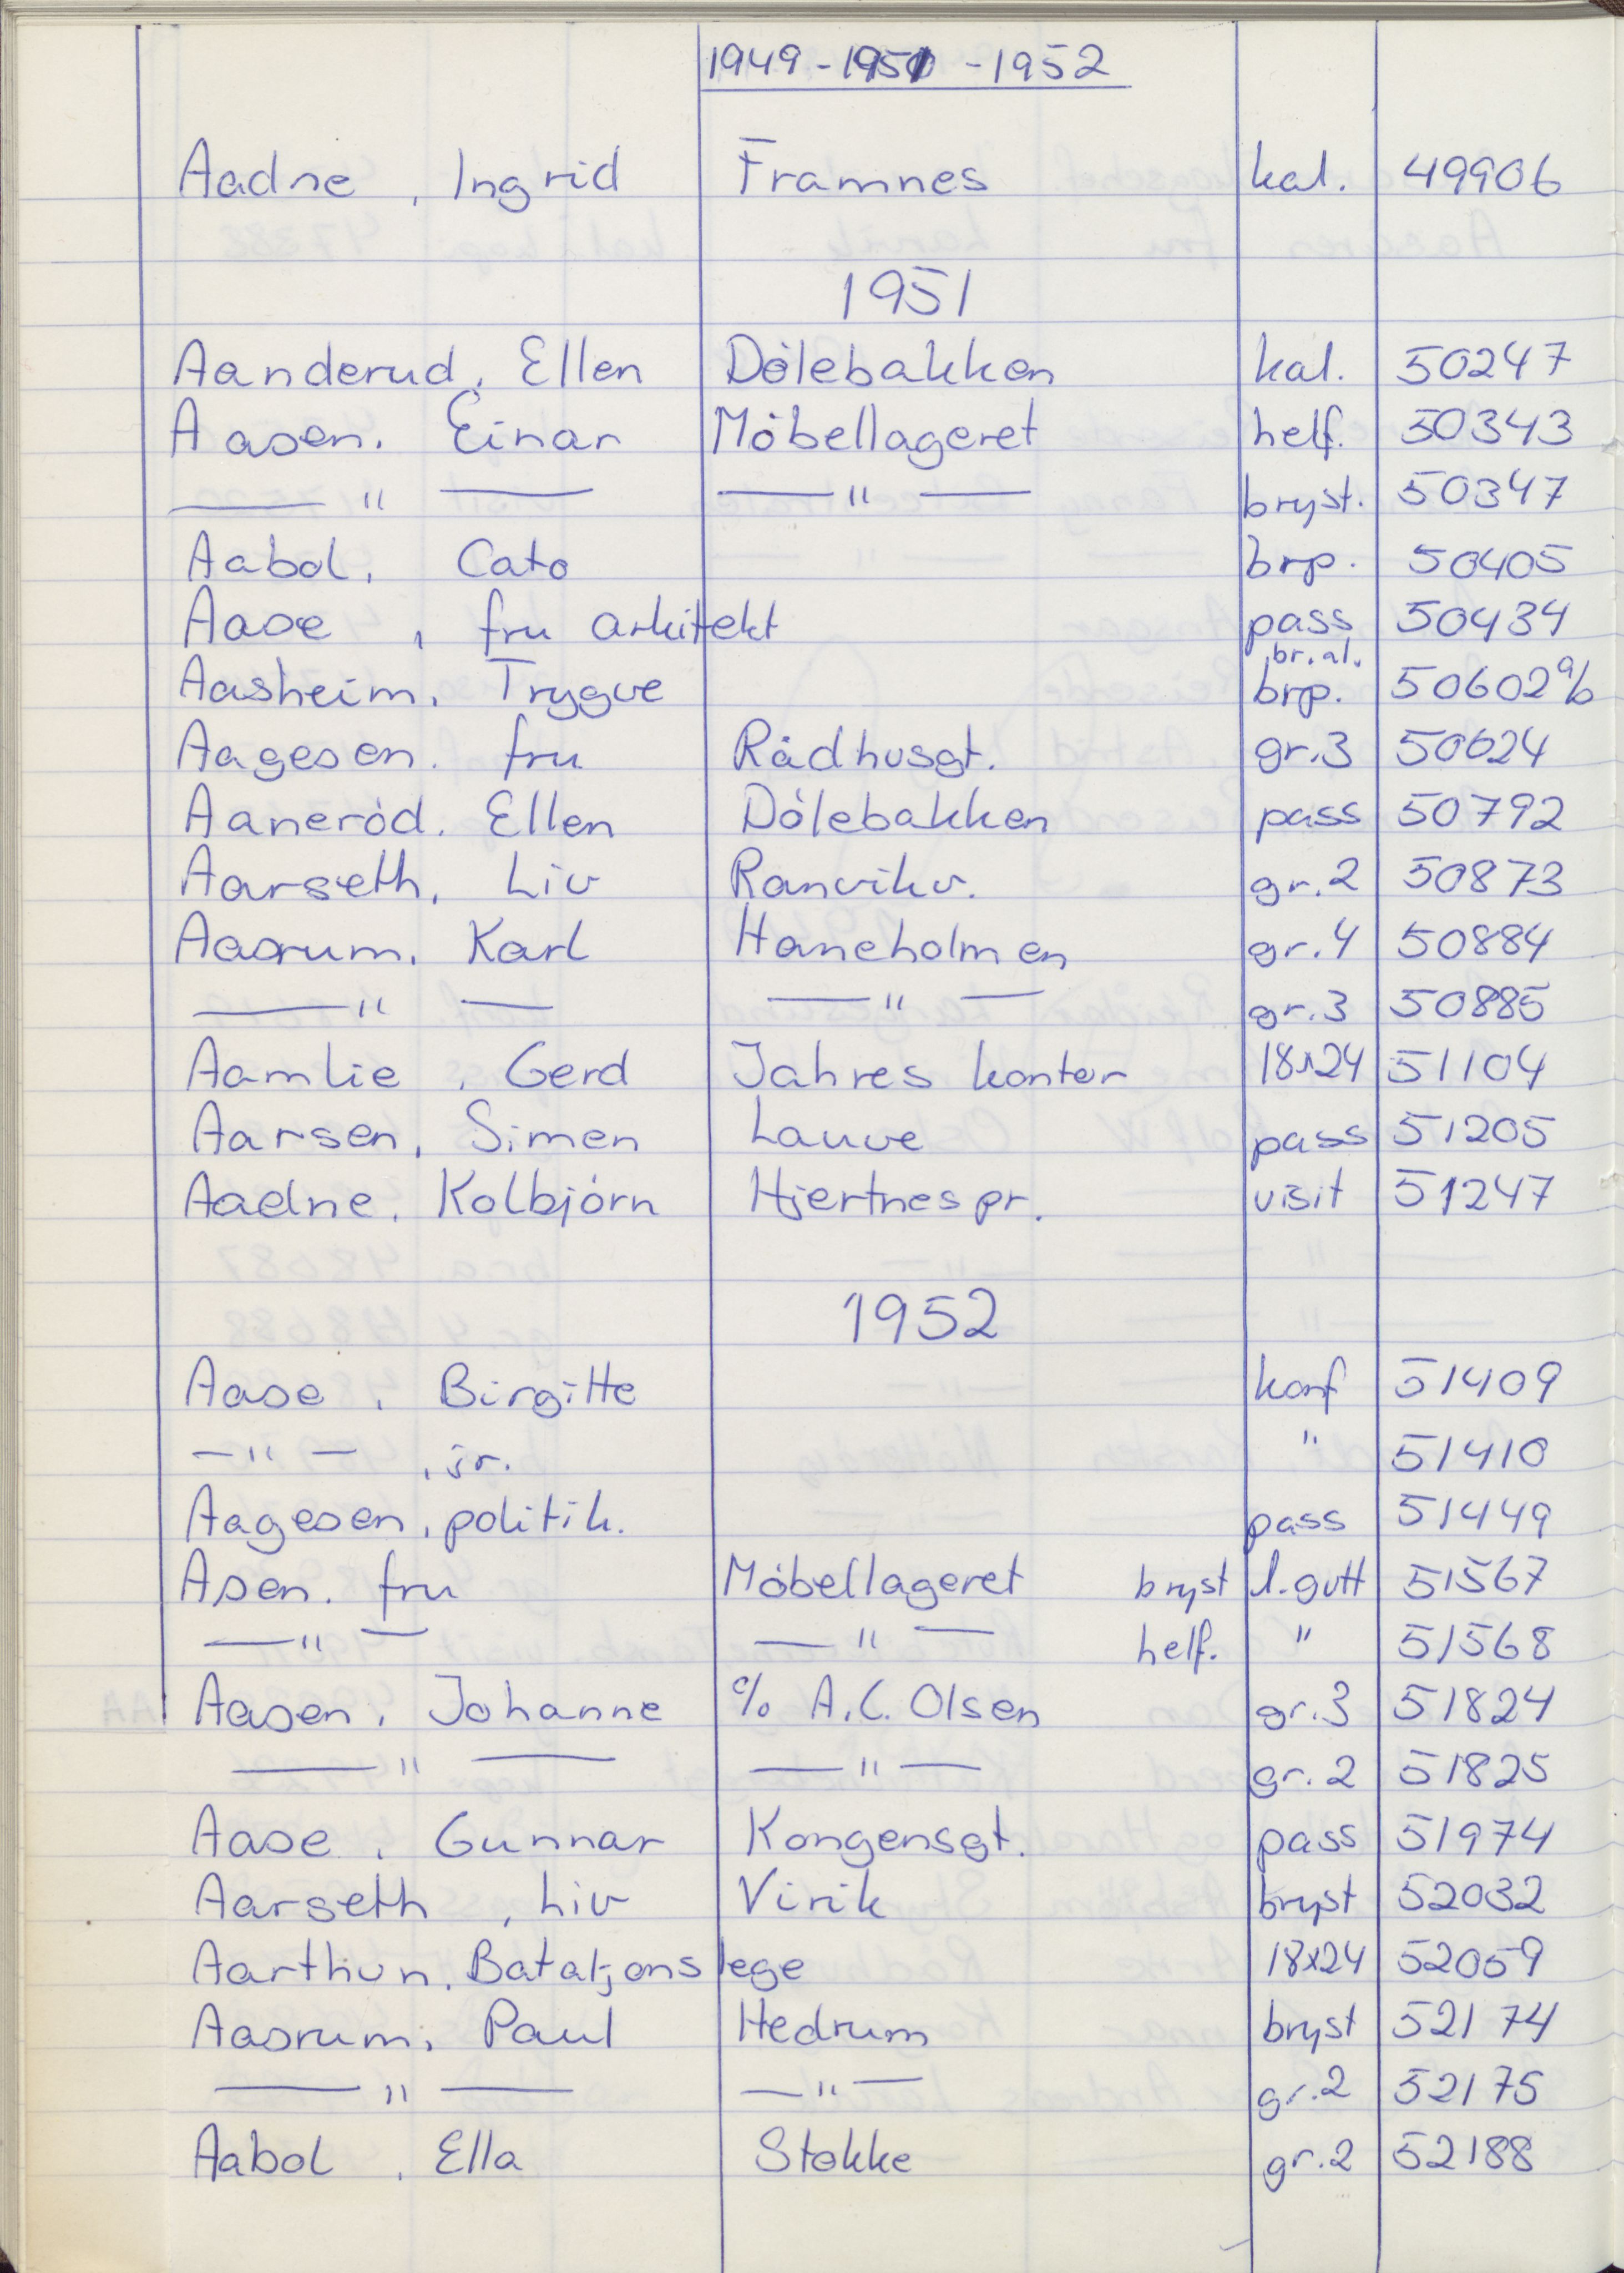 1949 - 1951 - 1952
Aadne, Ingrid Framnes kal. 49906
1951
Aanderud, Ellen Dölebakken kal. 50247
Aasen. Einar Möbellageret helf. 50343
— " — — " — bryst. 50347
Aabol, Cato brp. 50405
Aase, fru arkitekt pass 50434
br. al.
Aasheim, Trygve brp. 50602 a/b
Aagesen. fru Rådhusgt. gr. 3 50624
Aaneröd. Ellen Dölebakken pass 50792
Aarseth, Liv Ranvikv. gr. 2 50873
Aasrum, Karl Haneholmen gr. 4 50884
— " — — " — gr. 3 50885
Aamlie, Gerd Jahres kontor 18x24 51104
Aarsen, Simen Lauve pass 51205
Aadne, Kolbjörn Hjertnespr. visit 51247
1952
Aase, Birgitte konf 51409
— " —, jr. " 51410
Aagesen, politik. pass 51449
Asen. fru Möbellageret bryst l. gutt 51567
— " — — " — helf. " 51568
Aasen, Johanne c/o A.C. Olsen gr. 3 51824
— " — — " — gr. 2 51825
Aase, Gunnar Kongensgt. pass 51974
Aarseth, Liv Virik bryst 52032
Aarthun, Bataljonslege 18x24 52059
Aasrum, Paul Hedrum bryst 52174
— " — — " — gr. 2 52175
Aabol, Ella Stokke gr. 2 52188